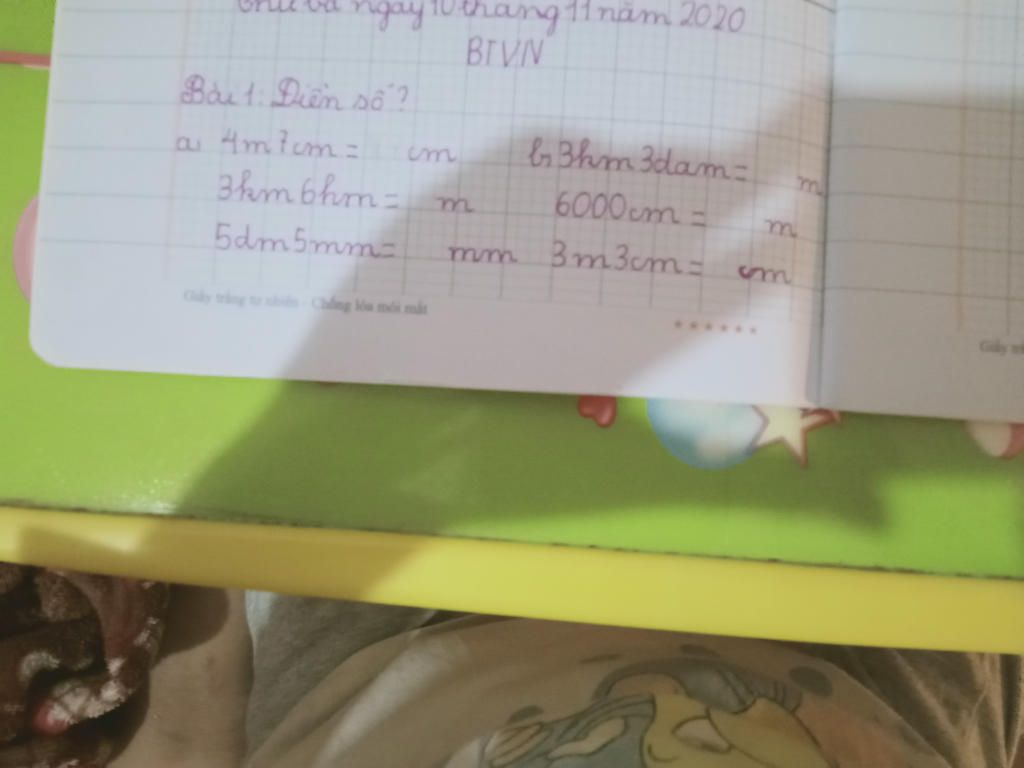 Thứ ba ngày 10 tháng 11 năm 2020
BTVN
Bài 1: Điền số?
a, 4m7cm = cm b, 3hm3dam = m
3km6hm = m 6000cm = m
5dm5mm= mm 3m3cm = cm
Giấy trắng tự nhiên - Chống lóa mỏi mắt